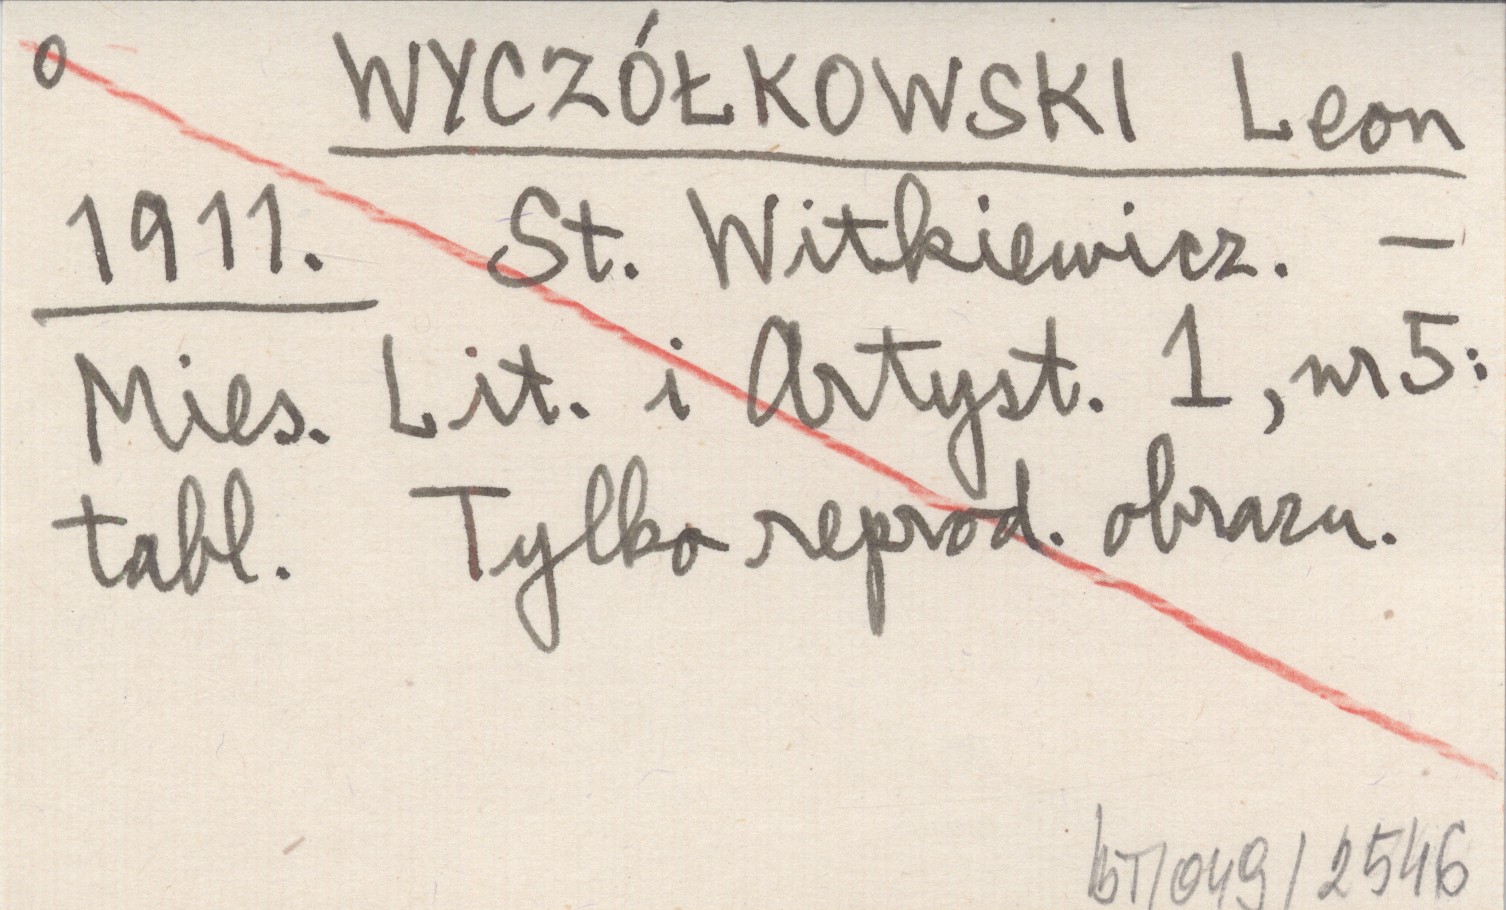 o WYCZÓŁKOWSKI Leon
1911. St. Witkiewicz. —
Mies. Lit. i Artyst. 1, nr 5:
tabl. Tylko reprod. obrazu.
bT/049/2546